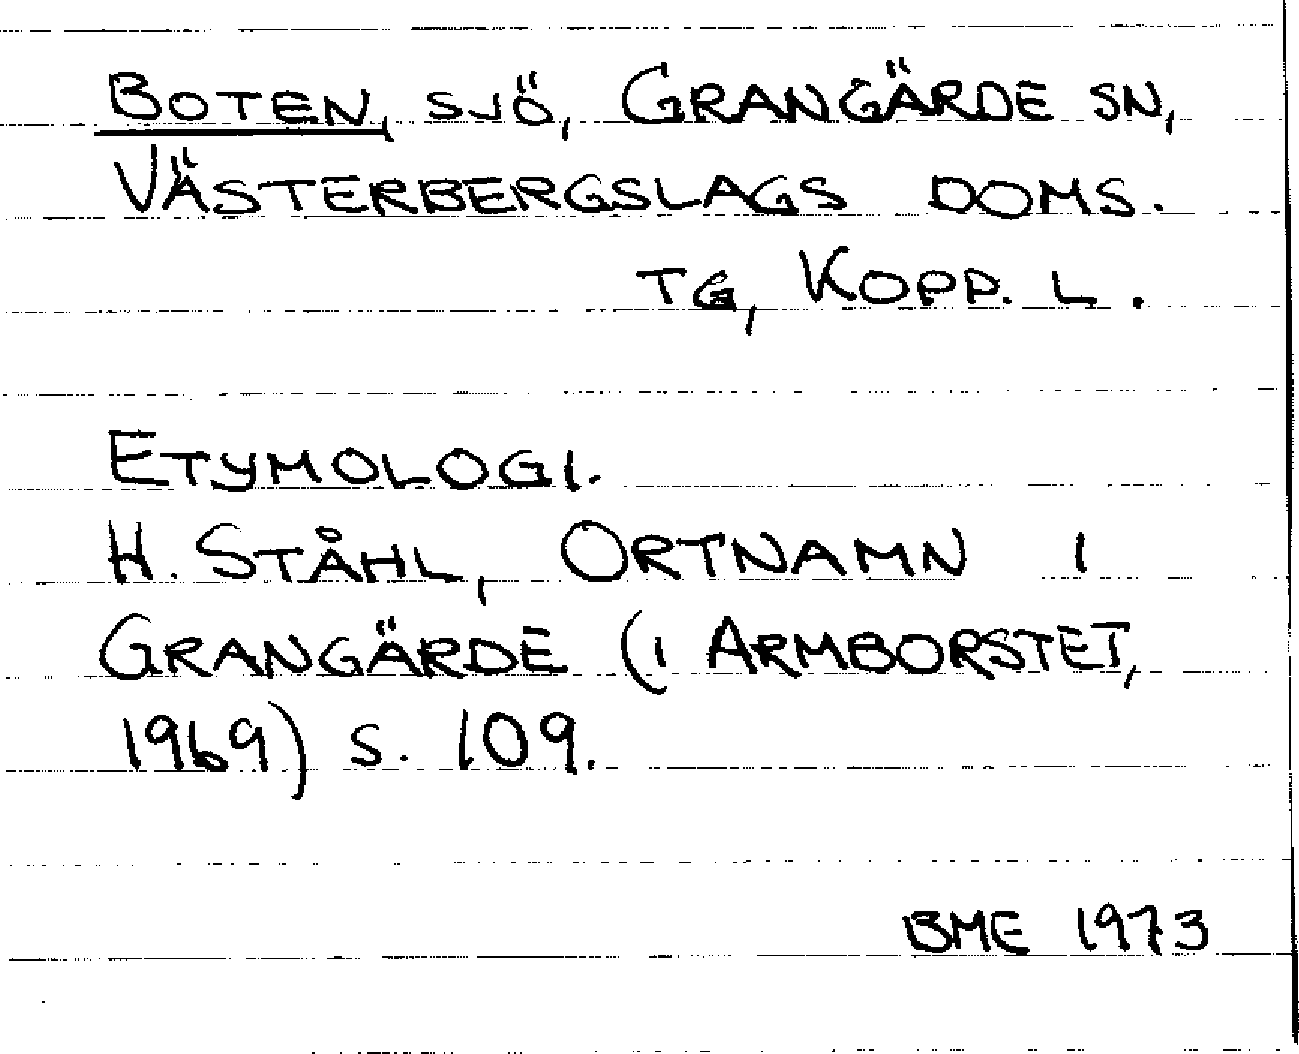 BOTEN, SJÖ, GRANGÄRDE SN,
VÄSTERBERGSLAGS DOMS.
TG, KOPP. L.
ETYMOLOGI.
H. STÅHL, ORTNAMN I
GRANGÄRDE (I ARMBORSTET,
1969) S. 109.
BME 1973